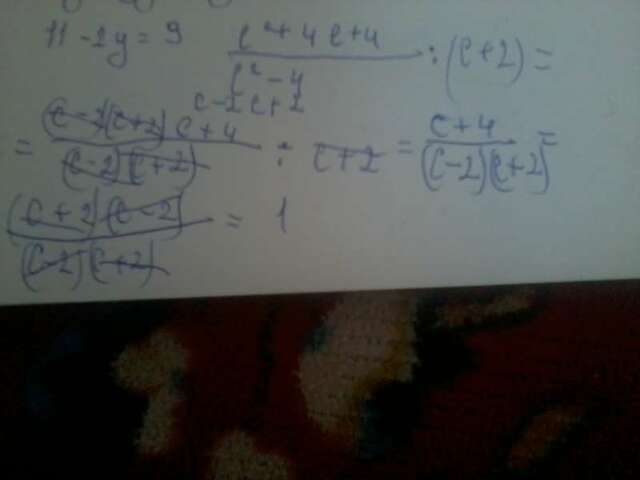 11 - 2y = 9
c² + 4c + 4 / c² - 4 : (c + 2) =
c - 2 c + 2
= (c - 2)(c + 2) c + 4 / (c - 2)(c + 2) : c + 2 = c + 4 / (c - 2)(c + 2) =
(c + 2)(c - 2) / (c - 2)(c + 2) = 1